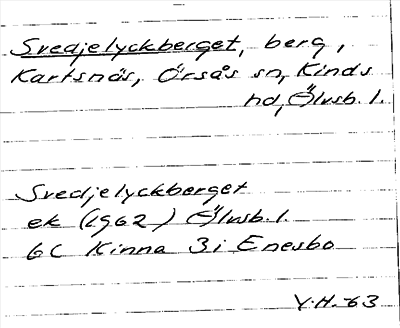 Svedjelyckberget, berg,
Kartsnäs, Örsås sn, Kinds
hd, Älvsb. l.
Svedjelyckberget
ek (1962) Älvsb. l.
6C Kinna 3i Enesbo
Y.H. -63